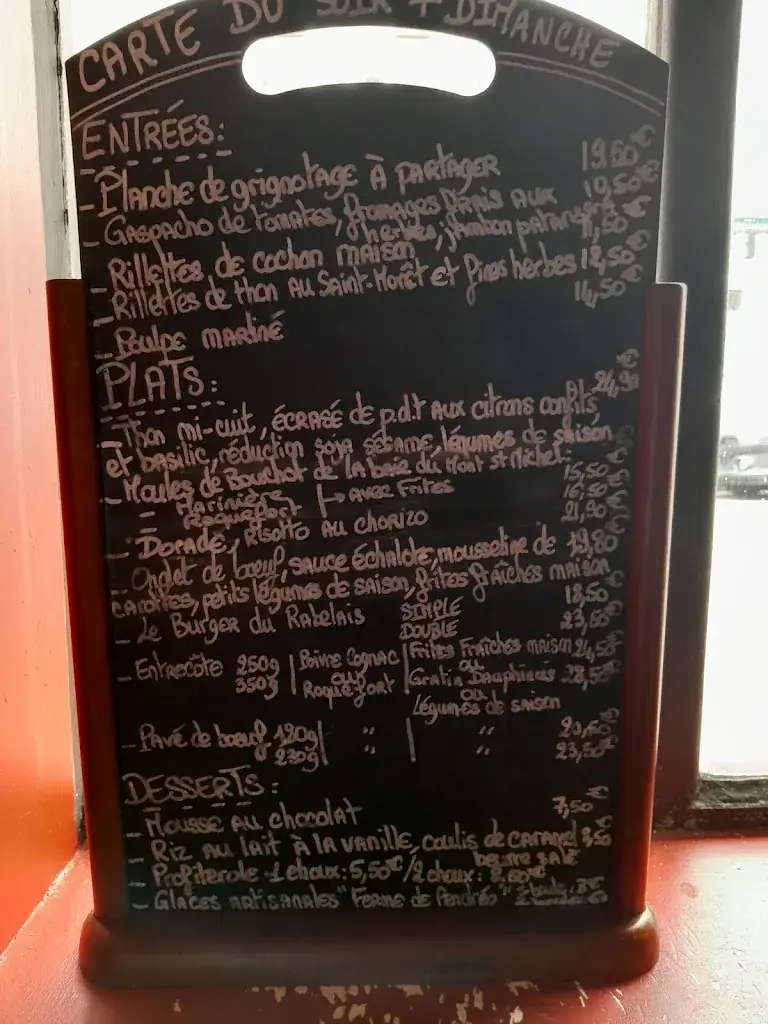 CARTE DU SOIR + DIMANCHE
ENTRÉES:
- Planche de grignotage à partager 19.50€
- Gaspacho de tomates, fromages frais aux 10,50€
herbes, jambon
- Rillettes de cochon maison 11,50€
- Rillettes de thon au Saint-Morêt et fines herbes 12,50€
- Poulpe mariné 14,50€
PLATS:
- Thon mi-cuit, écrasé de p.d.t aux citrons confits, 24,90€
et basilic, réduction soja sésame, légumes de saison
- Moules de Bouchot de la baie du Mont St Michel:
- Marinière 15,50€
- Roquefort → avec Frites 16,50€
- Dorade, Risotto au chorizo 21,90€
- Onglet de boeuf, sauce échalote, mousseline de 19,80€
carottes, petits légumes de saison, frites fraîches maison
- Le Burger du Rabelais SIMPLE 18,50€
DOUBLE 23,50€
- Entrecôte 250g | Poivre Cognac | Frites Fraîches maison 24,50€
350g ou ou
Roquefort Gratin Dauphinois 28,50€
ou
Légumes de saison
- Pavé de boeuf 180g | " | " 20,50€
230g 23,50€
DESSERTS:
- Mousse au chocolat 7,50€
- Riz au lait à la vanille, coulis de caramel 8,50
beurre salé
- Profiterole 1 choux: 5,50€ / 2 choux: 8,50€
- Glaces artisanales "Ferme de